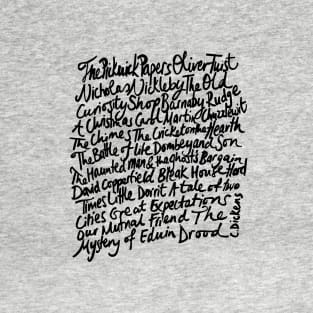 The Pickwick Papers Oliver Twist
Nicholas Nickleby The Old
Curiosity Shop Barnaby Rudge
A Christmas Carol Martin Chuzzlewit
The Chimes The Cricket on the Hearth
The Battle of Life Dombey and Son
The Haunted Man & the Ghosts Bargain
David Copperfield Bleak House Hard
Times Little Dorrit A tale of two
Cities Great Expectations
Our Mutual Friend The
Mystery of Edwin Drood
C. Dickens